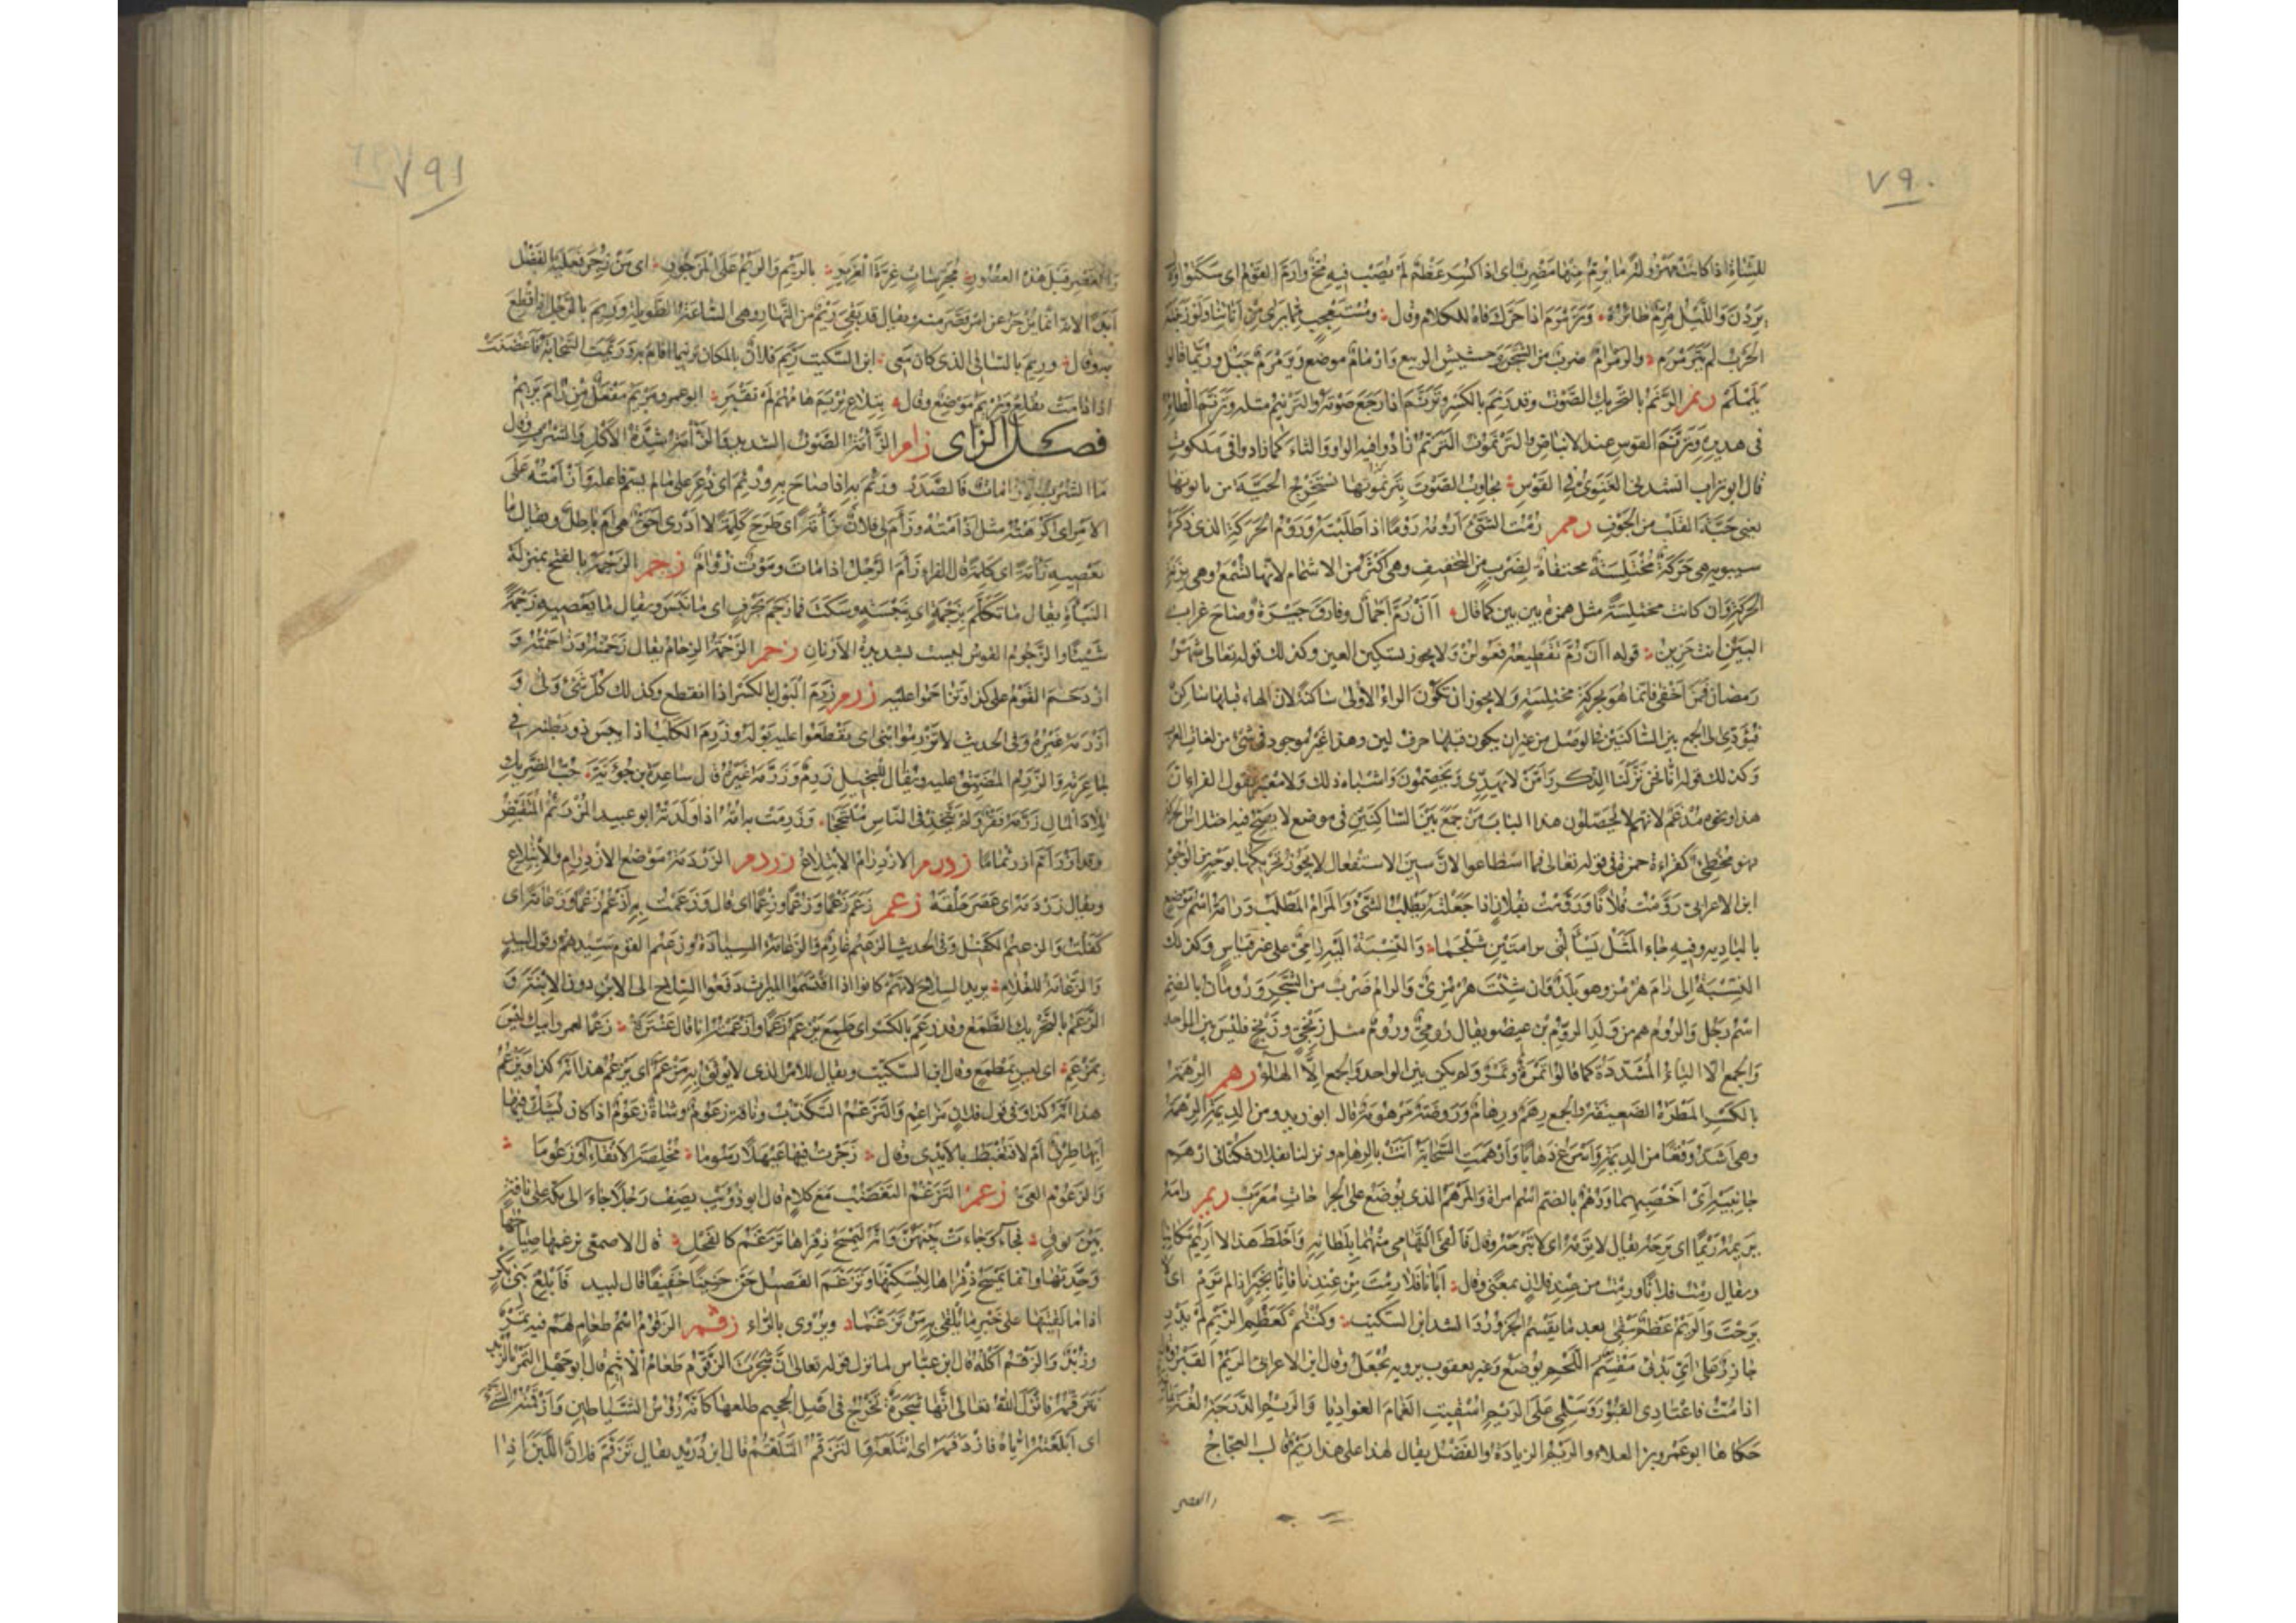 ٧٩٠
للشاة اذا كانت مهزولة ما يرم منها مضرب اى اذا كسر عظم لم يصب فيه مخ وارم القوم اى سكتوا
يردن والليل مرم طائره وترمرم اذا حرك فاه للكلام وقال ومستعجب مما يرى من اناتنا ولو زبنته
الحرب لم يترمرم والرمرام ضرب من الشجر وحشيش الربيع وارمام موضع ويرمرم جبل وربما قالوا
يلملم رنم الرنم بالتحريك الصوت وقد رنم بالكسر وترنم اذا رجع صوته والترنيم مثله وترنم الطائر
فى هديره وترنم القوس عند الانباض والترنموت الترنم زادوا فيه الواو والتاء كما زادوا فى ملكوت
قال ابو تراب انشدنى الغنوى فى القوس تجاوب الصوت بترنموتها تستخرج الحبة من تابوتها
يعنى حبة القلب من الجوف رمت الشئ ارومه روما اذا طلبته وروم الحركة الذى ذكره
سيبويه هى حركة مختلسة مختفاة لضرب من التخفيف وهى اكثر من الاشمام لانها تسمع وهى بزنة
الحركة وان كانت مختلسة مثل همزة بين بين كما قال أان زم اجمال وفارق جيرة وصاح غراب
البين انت حزين قوله أان زم تقطيعه فعولن ولا يجوز تسكين العين وكذلك قوله تعالى شهر
رمضان فمن اخفى فانما هو بحركة مختلسة ولا يجوز ان تكون الراء الاولى ساكنة لان الهاء قبلها ساكن
فيؤدى الى الجمع بين الساكنين فى الوصل من غير ان يكون قبلها حرف لين وهذا غير موجود فى شئ من لغات العرب
وكذلك قوله انا نحن نزلنا الذكر وامن لا يهدى ويخصمون واشباه ذلك ولا معتبر بقول القراء ان
هذا ونحوه مدغم لانهم لا يحصلون هذا الباب من جمع بين الساكنين فى موضع لا يصح فيه اختلاس الحركة
فهو مخطئ كقراءة حمزة فى قوله تعالى فما اسطاعوا لان سين الاستفعال لا يجوز تحريكها بوجه من الوجوه
ابن الاعرابى رومت فلانا ورومت بفلان اذا جعلته يطلب الشئ والمرام المطلب ورامة اسم موضع
بالبادية وفيه جاء المثل تسألنى برامتين شلجما والنسبة اليه رامى على غير قياس وكذلك
النسبة الى رام هرمز وهو بلد وان شئت هرمزى والرام ضرب من الشجر ورومان بالضم
اسم رجل والروم هم من ولد الروم بن عيصو يقال رومى وروم مثل زنجى وزنج فليس بين الواحد
والجمع الا الياء المشددة كما قالوا تمرة وتمر ولم يكن بين الواحد والجمع الا الهاء رهم الرهمة
بالكسر المطرة الضعيفة والجمع رهم ورهام وروضة مرهومة قال ابو زيد ومن الديمة الرهمة
وهى اشد وقعا من الديمة واسرع ذهابا وارهمت السحابة اتت بالرهام ونزلنا بفلان فكنا فى ارهم
جانبيه اى اخصبهما ورهم بالضم اسم امراة والمرهم الذى يوضع على الجراحات معرب ريم رامه
يريمه ريما اى برحه يقال لا ترمه اى لا تبرحه وقال فالقى التهامى منهما بلطاته واحلط هذا لا اريم مكانيا
ويقال رمت فلانا ورمت من عند فلان بمعنى وقال ابانا فلا رمت من عندنا فانا بخير اذا لم ترم اى لا
برحت والريم عظم يبقى بعد ما يقسم الجزور انشد ابن السكيت وكنتم كعظم الريم لم يدر
جازر على اى بدئ مقسم اللحم يوضع وغير يعقوب يرويه يجعل وقال ابن الاعرابى الريم القبر وقال
اذا مت فاعتادى القبور وسلمى على الريم اسقيت الغمام الغواديا والريم الدرجة لغة يمانية
حكاها ابو عمرو بن العلاء والريم الزيادة والفضل يقال لهذا على هذا ريم قال العجاج
والعصر
٧٩١
والعصر قبل هذه العصور مجرسات غرة الغرير بالريم والريم على المزجور اى من زجر فعليه الفضل
ابدا لانه انما يزجر عن امر قصر منه ويقال قد بقى ريم من النهار وهى الساعة الطويلة وريم بالرجل اذا قطع
به وقال وريم بالساقى الذى كان معى ابن السكيت ريم فلان بالمكان ترييما اقام به وريمت السحابة فاغضنت
اذا دامت فلم تقلع وتريم موضع وقال بتلاع تريم هامهم لم تقبر ابو عمرو مريم مفعل من رام يريم
فصل الزاى زام الزأمة الصوت الشديد والزأمة شدة الاكل والشرب وقال
ما الشرب الا زأمات فالصدر وزئم به اذا صاح به وزئم اى ذعر على ما لم يسم فاعله وازأمته على
الامر اى اكرهته مثل اذأمته وزأم لى فلان زأمة اى طرح كلمة لا ادرى احق هى ام باطل ويقال ما
يعصيه زأمة اى كلمة قال الفراء زأم الرجل اذا مات وموت زؤام زجم الزجمة بالفتح بمنزلة
النبأة يقال ما تكلم بزجمة اى بنبسة وسكت فما زجم بحرف اى ما نبس ويقال ما يعصيه زجمة
شيئا والزجوم القوس ليست بشديدة الارنان زحم الزحمة الزحام يقال زحمته وزاحمته و
ازدحم القوم على كذا وتزاحموا عليه زرم زرم البول بالكسر اذا انقطع وكذلك كل شئ ولى و
ازرمه غيره وفى الحديث لا تزرموا ابنى اى لا تقطعوا عليه بوله وزرم الكلب اذا يبس ذو بطنه فى
جاعرته والزرم المضيق عليه ويقال للبخيل زرم وزرمه غيره قال ساعدة بن جؤية حب الضريك
تلاد المال زرمه فقر ولم يتخذ فى الناس ملتحجا وزرمت به امه اذا ولدته ابو عبيد المزرئم المتقبض
وقد ازرأم ازرئماما زدرم الازدرام الابتلاع زردم الزردمة موضع الازدرام والابتلاع
ويقال زردمه اى عصر حلقه زعم زعم زعما وزعما وزعما اى قال وزعمت به ازعم زعما وزعامة اى
كفلت والزعيم الكفيل وفى الحديث الزعيم غارم والزعامة السيادة وزعيم القوم سيدهم وقول لبيد
والزعامة للغلام يريد السلاح لانهم كانوا اذا اقتسموا الميراث دفعوا السلاح الى الابن دون الابنة و
الزعم بالتحريك الطمع وقد زعم بالكسر اى طمع يزعم زعما وازعمته انا قال عنترة زعما لعمر ابيك ليس
بمزعم اى ليس بمطمع وقال ابن السكيت ويقال للامر الذى لا يوثق به مزعم اى يزعم هذا انه كذا ويزعم
هذا انه كذا وفى قول فلان مزاعم والتزعم التكذب وناقة زعوم وشاة زعوم اذا كان يشك فيها
ابها طرق ام لا فتغبط بالايدى وقال زجرت فيها عيهلا رسوما مخلصة الانقاء او زعوما
والزعوم العيى زغم التزغم التغضب مع كلام قال ابو ذؤيب يصف رجلا جاء الى مكة على ناقة
بين نوق فجاء وجاءت بينهن وانه ليمسح ذفراها تزغم كالفحل قال الاصمعى تزغمها صياحها
وحدتها وانما يمسح ذفراها ليسكنها وتزغم الفصيل حن حنينا خفيفا قال لبيد فابلغ بنى بكر
اذا ما لقيتها على خير ما يلقى به من تزغما ويروى بالراء زقم الزقوم اسم طعام لهم فيه تمر
وزبد والزقم اكله قال ابن عباس لما نزل قوله تعالى ان شجرت الزقوم طعام الاثيم قال ابو جهل التمر بالزبد
نتزقمه فانزل الله تعالى انها شجرة تخرج فى اصل الجحيم طلعها كانه رؤس الشياطين وازقمته الشئ
اى ابلعته اياه فازدقمه اى ابتلعه والتزقم التلقم قال ابن دريد يقال تزقم فلان اللبن اذا